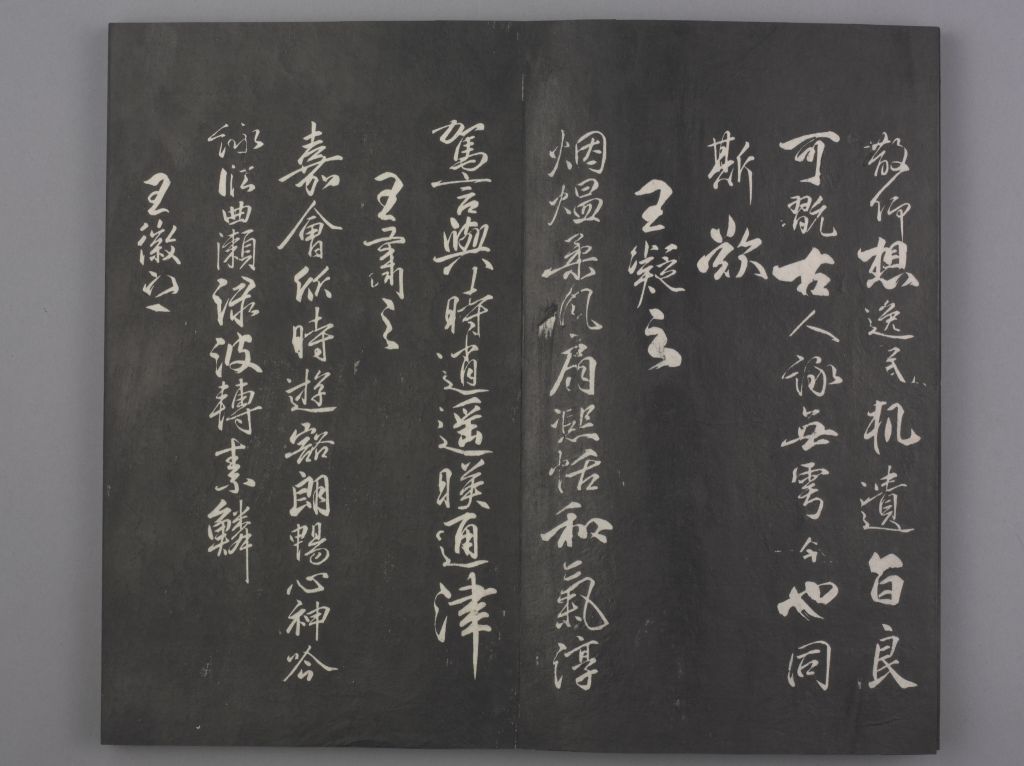 散仰想逸民軌遺旨良
可翫古人詠無雩今也同
斯歎
王凝之
烟熅柔風扇熙恬和氣淳
駕言興時逍遥暎通津
王肅之
嘉會欣時遊豁朗暢心神吟
詠曲瀨緑波轉素鱗
王徽之